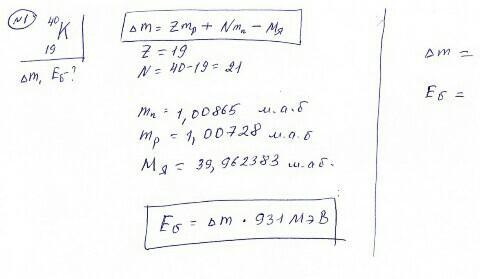 №1 ⁴⁰₁₉K
Δm, Eб?
Δm = Zmp + Nmn - Mя
Z = 19
N = 40-19 = 21
mn = 1,00865 м.а.б
mp = 1,00728 м.а.б
Mя = 39,962383 м.а.б.
Eб = Δm · 931 МэВ
Δm =
Eб =